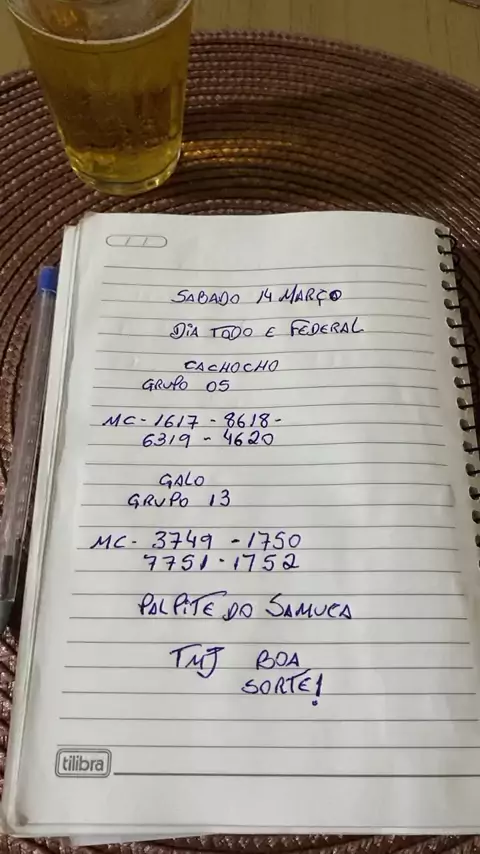 SABADO 14 MARÇO
DIA TODO E FEDERAL
CACHOCHO
GRUPO 05
MC - 1617 - 8618 -
6319 - 4620
GALO
GRUPO 13
MC - 3749 - 1750
7751 - 1752
PALPITE DO SAMUCA
TMJ BOA
SORTE!
tilibra